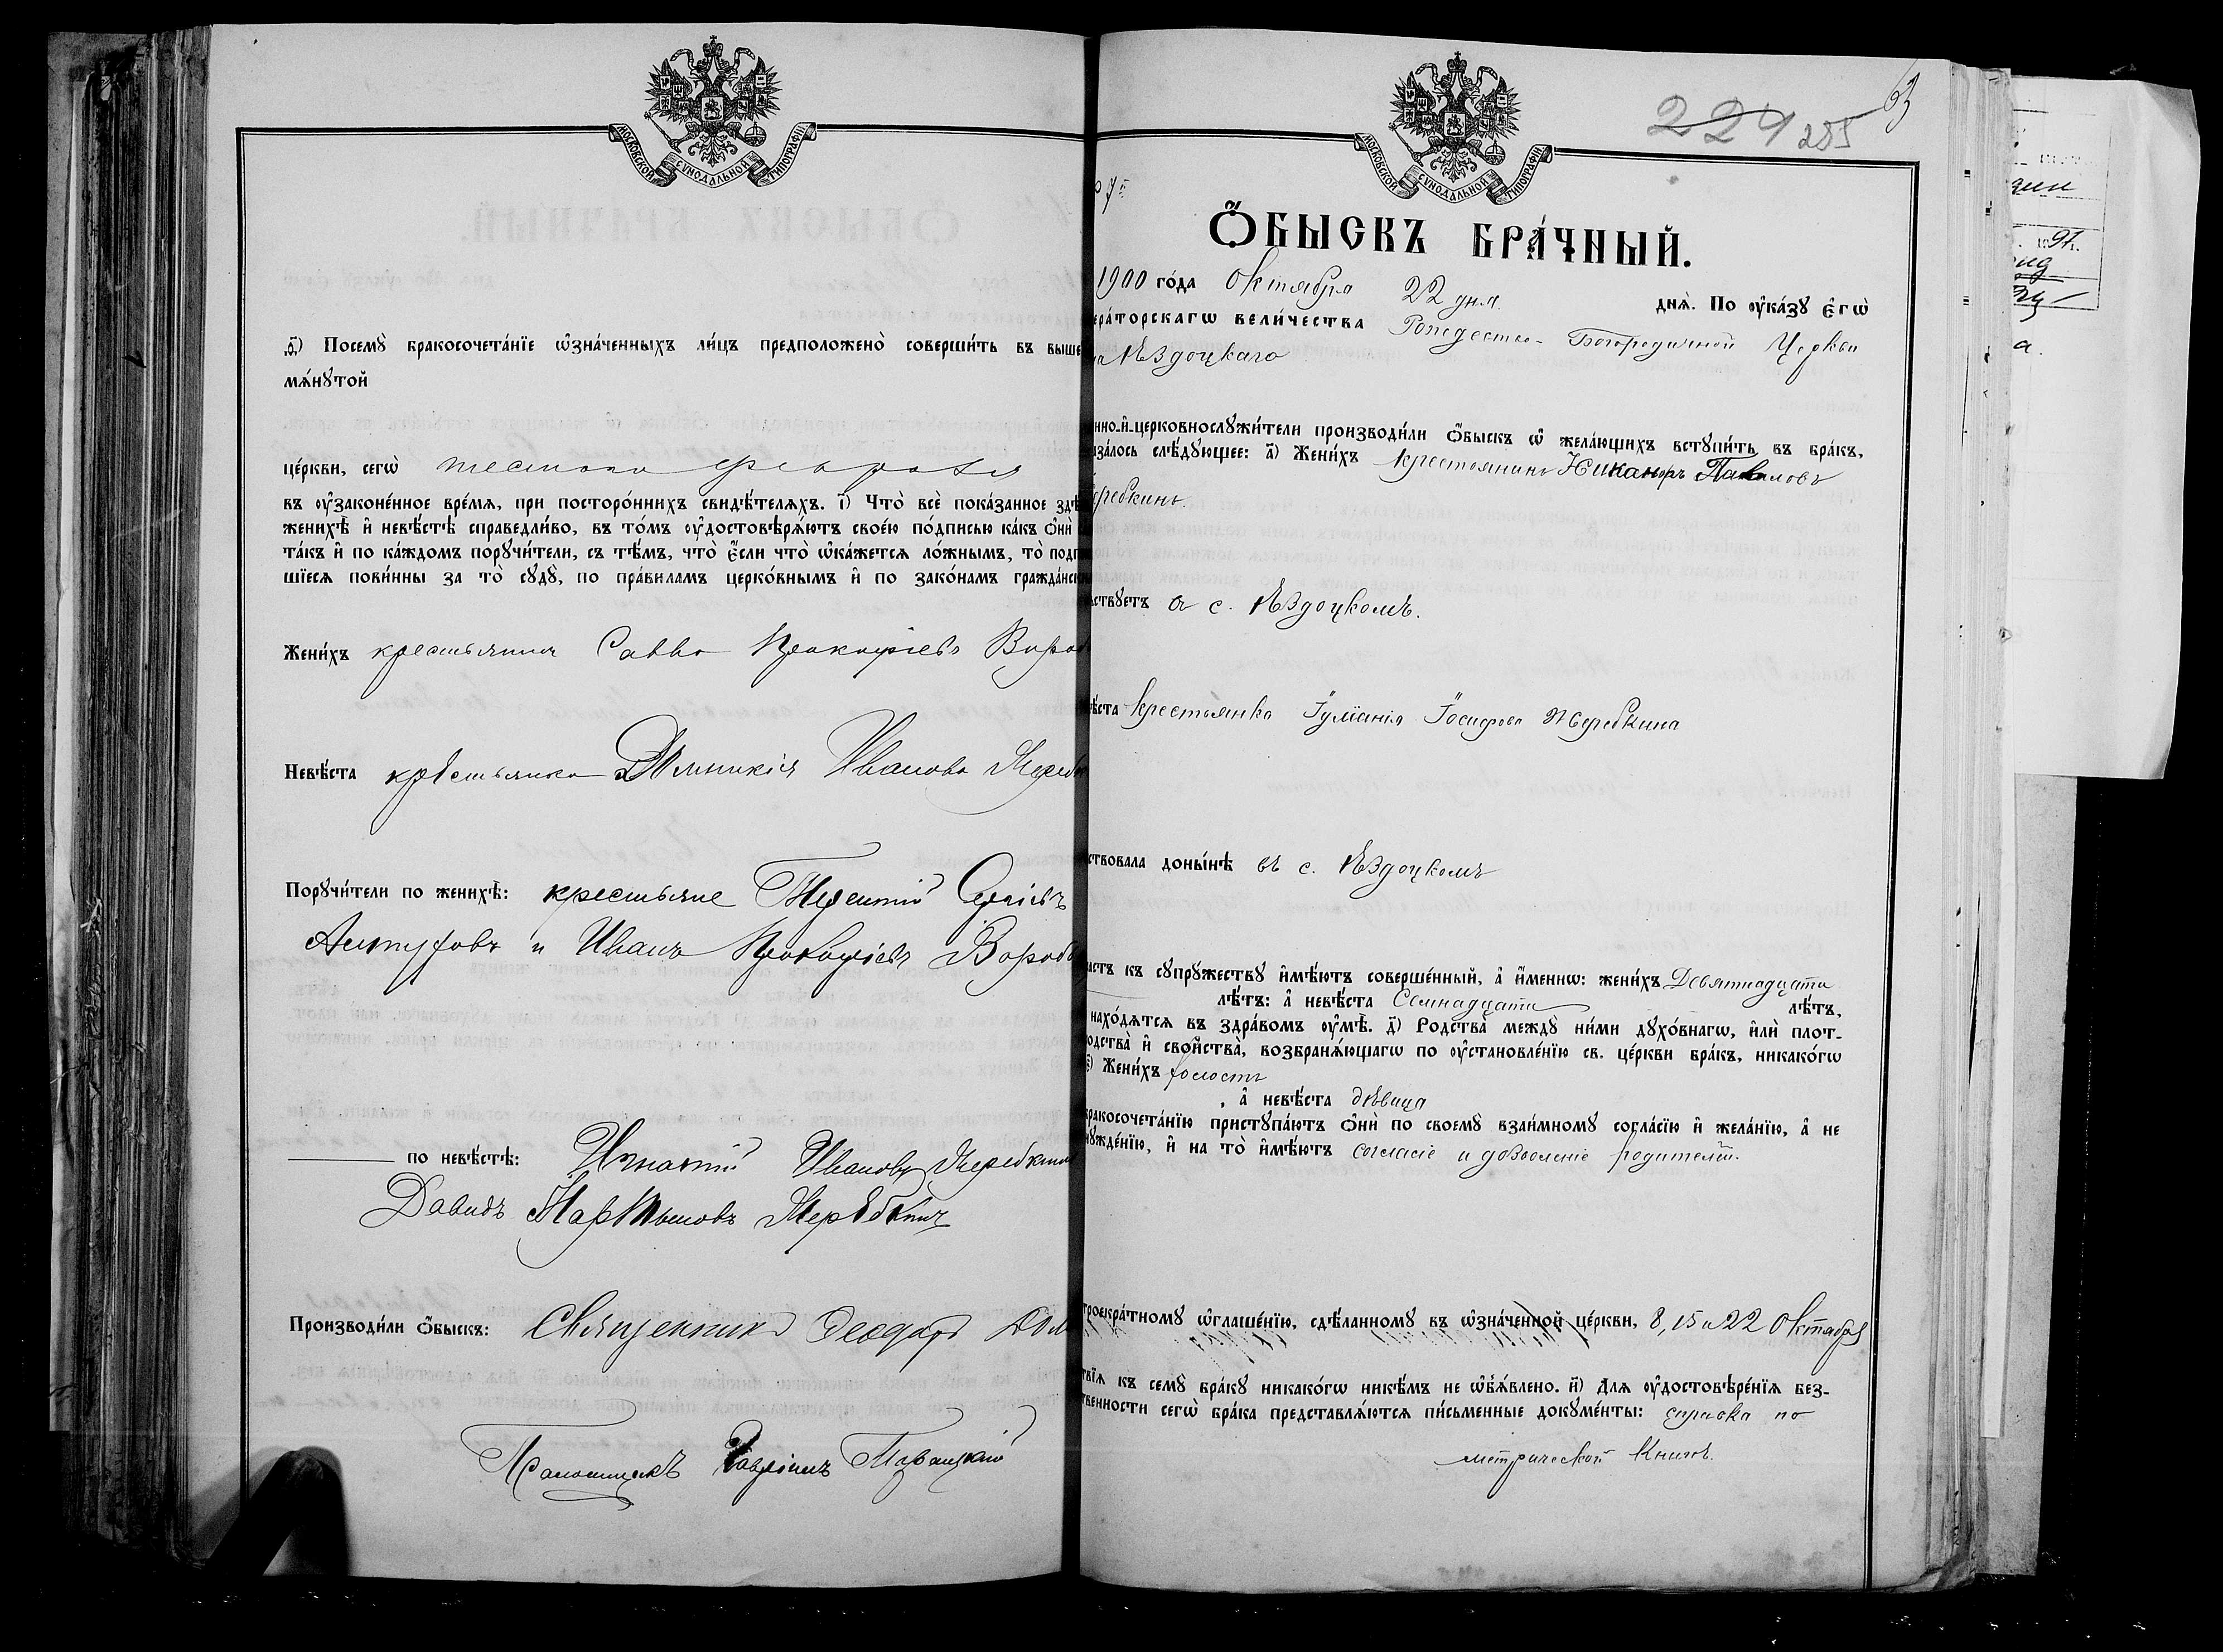 МОСКОВСКОЙ СѴНОДАЛЬНОЙ ТИПОГРАФІИ
ѳ҃) Посемꙋ̀ бракосочета́нїе ѡ҆зна́ченныхъ ли́цъ предположено̀ соверши́ть въ выше
мѧ́нꙋтой
це́ркви, сегѡ̀ шестого февраля
въ ᲂу҆законе́нное вре́мѧ, при посторо́ннихъ свидѣ́телѧхъ. і҃) Что̀ всѐ пока́занное здѣ
женихѣ̀ и҆ невѣ́стѣ справедли́во, въ то́мъ ᲂу҆достовѣрѧ́ютъ свое́ю по́дписью ка́къ ѻ҆нѝ
та́къ и҆ по ка́ждомъ порꙋчи́тели, съ тѣ́мъ, что̀ є҆́сли что̀ ѡ҆ка́жетсѧ ло́жнымъ, то̀ подп
шїесѧ пови́нны за то̀ сꙋдꙋ̀, по пра́виламъ церко́внымъ и҆ по зако́намъ гражда́нск
Жени́хъ крестьянинъ Савва Прокофіевъ Вороб
Невѣ́ста крестьянка Домникія Иванова Жереб
Порꙋчи́тели по женихѣ̀: крестьяне Терентій Сергіевъ
и Иванъ Прокофіевъ Вороб
по невѣ́стѣ: Игнатій Ивановъ Жеребкин
Давидъ Мартыновъ Жеребкинъ
Производи́ли ѻ҆́быскъ: Священникъ Ѳеодоръ
Псаломщикъ Гавріилъ
МОСКОВСКОЙ СѴНОДАЛЬНОЙ ТИПОГРАФІИ
224 285
Ѻ҆́БЫСКЪ БРА́ЧНЫЙ.
1900 го́да Октября 22 дня. днѧ̀. По ᲂу҆ка́зꙋ є҆гѡ̀
ера́торскагѡ вели́чества Рождество-Богородичной Церкви
ѣздоцкаго
нно-и҆-церковнослꙋжи́тели производи́ли ѻ҆́быскъ ѡ҆ жела́ющихъ встꙋпи́ть въ бра́къ,
за́лось слѣ́дꙋющее: а҃) Жени́хъ крестьянинъ Никаноръ Павловъ
еребкинъ.
ствꙋетъ въ с. ѣздоцкомъ.
ѣ́ста крестьянка Іуліанія Іосифова Жеребкина
ствовала доны́нѣ въ с. ѣздоцкомъ
астъ къ сꙋпрꙋ́жествꙋ и҆мѣ́ютъ соверше́нный, а҆ и҆́меннѡ: жени́хъ Девятнадцати
лѣ́тъ: а҆ невѣ́ста Семнадцати лѣ́тъ,
нахо́дѧтсѧ въ здра́вомъ ᲂу҆мѣ̀. д҃) Родства̀ междꙋ̀ ни́ми дꙋхо́внагѡ, и҆лѝ плот-
одства̀ и҆ сво́йства̀, возбранѧ́ющагѡ по ᲂу҆становле́нїю св. це́ркви бра́къ, никако́гѡ
є҃) Жени́хъ холостъ
, а҆ невѣ́ста дѣвица
ракосочета́нїю пристꙋпа́ютъ ѻ҆нѝ по своемꙋ̀ взаи́мномꙋ согла́сїю и҆ жела́нїю, а҆ не
ꙋжде́нїю, и҆ на то̀ и҆мѣ́ютъ согласіе и дозволеніе родителей.
троекра́тномꙋ ѡ҆глаше́нїю, сдѣ́ланномꙋ въ ѡ҆зна́ченной це́ркви, 8, 15 и 22 Октября
твїѧ къ семꙋ̀ бра́кꙋ никако́гѡ никѣ́мъ не ѡ҆б̾ѧ́влено. и҃) Длѧ ᲂу҆достовѣре́нїѧ без-
твенности сегѡ̀ бра́ка представлѧ́ютсѧ пи́сьменные докꙋме́нты: справка по
метрической книгѣ.